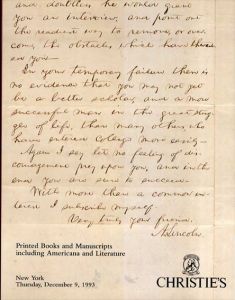 and doubtless he would grant
you an interview, and point out
the readiest way to remove, or over-
come, the obstacles which have thwarted
you—
In your temporary failure there is
no evidence that you may not yet
be a better scholar, and a more
successful man in the great strug-
gle of life, than many others, who
have entered college more easily—
Again I say let no feeling of dis-
couragement prey upon you, and in the
end you are sure to succeed.
With more than a common in-
terest I subscribe myself
Very truly your friend,
A. Lincoln.
Printed Books and Manuscripts
including Americana and Literature
New York
Thursday, December 9, 1993
CHRISTIE'S